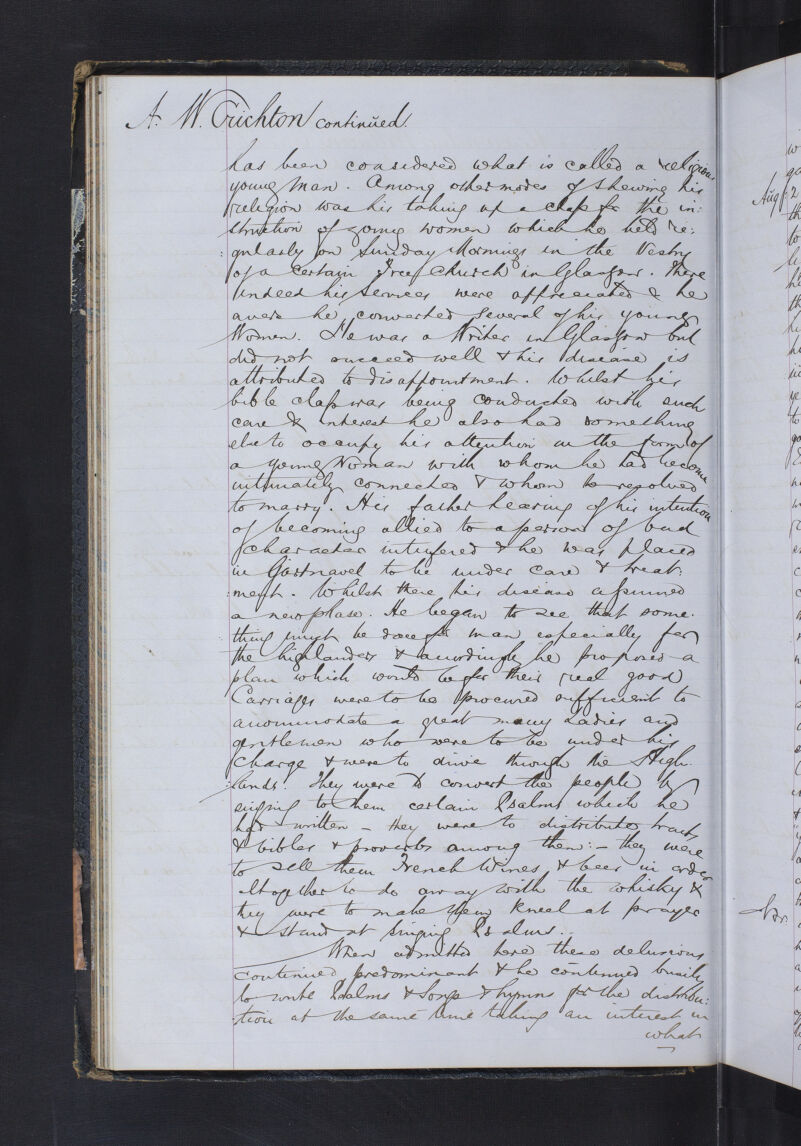 A. W. Crichton continued.
has been considered what is called a religious
young man. Among other modes of shewing his
religion was his taking up a class for the in:
struction of young women which he held re:
:gularly on Sunday Mornings in the Vestry
of a certain Free Church in Glasgow. There
indeed his services were appreciated & he
avers he converted several of his young
Women. He was a Writer in Glasgow but
did not succeed well & his disease is
attributed to disappointment. Whilst his
bible class was being conducted with such
care & interest he also had something
else to occupy his attention in the form of
a young Woman with whom he had become
intimately connected & whom he resolved
to marry. His father hearing of his intention
of becoming allied to a person of bad
character interfered & he was placed
in Gartnavel to be under care & treat:
:ment. Whilst there his disease assumed
a new phase. He began to see that some:
thing must be done for man especially for
the highlanders & accordingly he proposed a
plan which would be for their real good
Carriages were to be procured sufficient to
accommodate a great many Ladies and
gentlemen who were to be under his
charge & were to drive through the High:
lands. They were to convert the people by
singing to them certain Psalms which he
had written – they were to distribute tracts
& bibles & proverbs among them: – they were
to sell them French Wines & beer in order
altogether to do away with the whisky &
they were to make them kneel at prayer
& stand at singing Psalms.
When admitted here these delusions
continued predominant & he continued busily
to write Psalms & Songs & hymns for the distribu:
:tion at the same time taking an interest in
what
Aug 2
Nov.